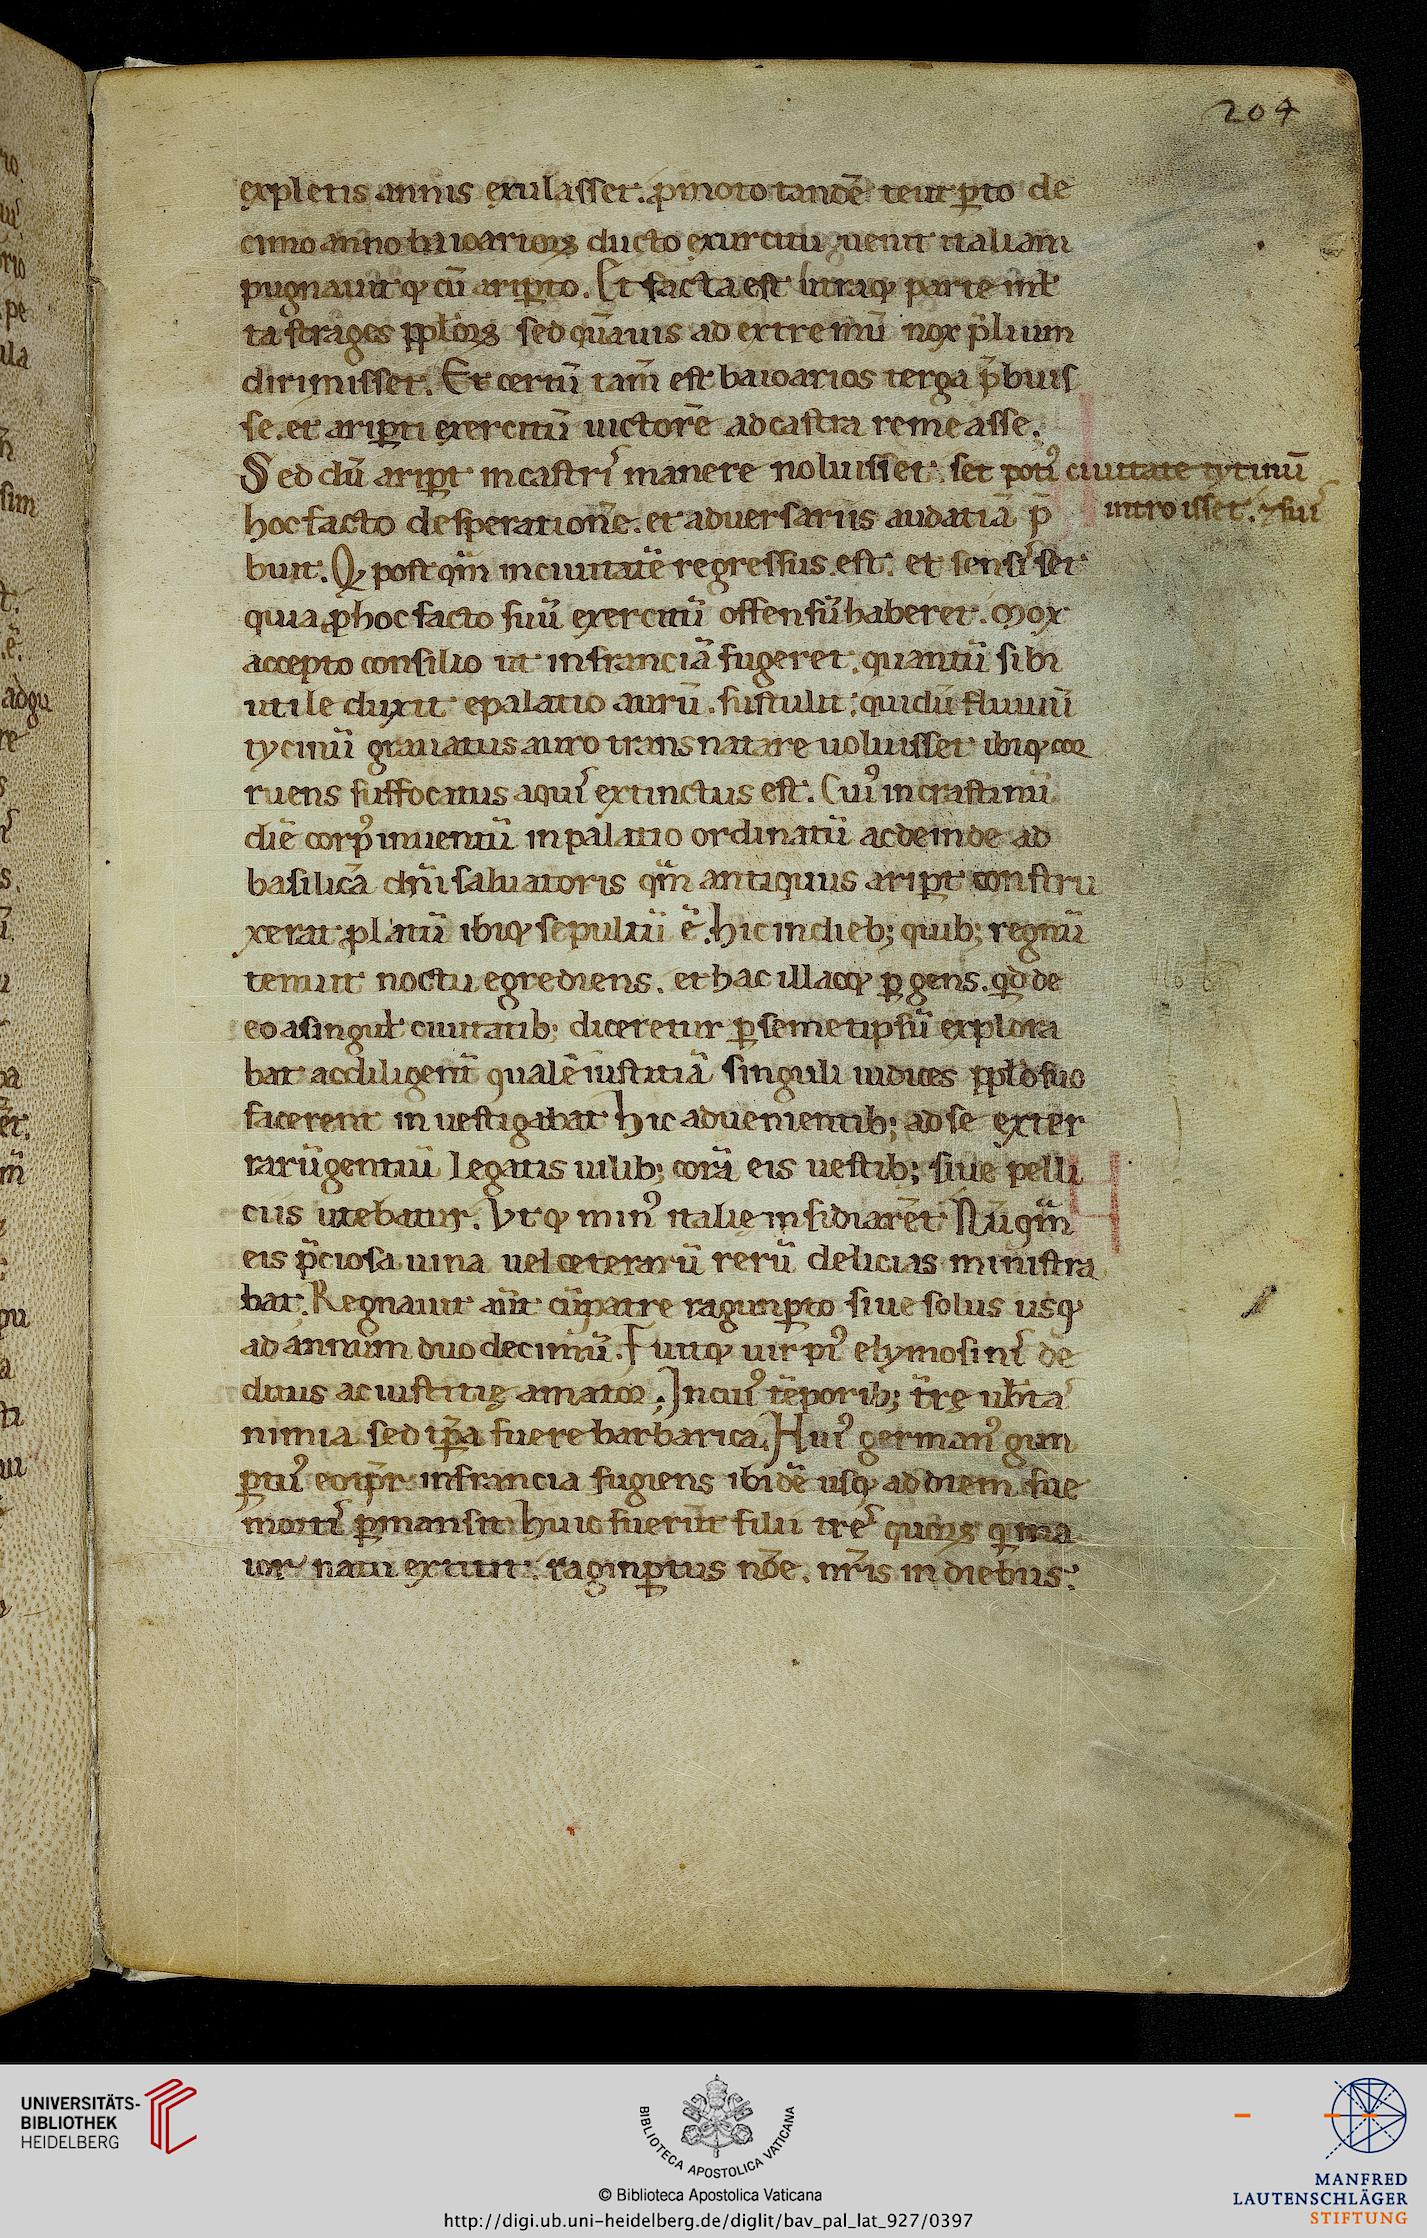 204
expletis annis exulasset. ꝓmoto tandē teutꝑto de
cimo anno baioarioꝝ ducto exurcitu uenit italiam
pugnauitqꝫ cū ariꝑto. Et facta est utraqꝫ parte mĺ
ta strages ppl̄oꝝ sed qūauis ad extremū nox p̄lium
dirimisset. Et certū tam̄ est baioarios terga p̄buis
se. et ariꝑti exercitū uictorē ad castra remeasse.
Sed dū ariꝑt in castrıſ manere noluisset. set potiꝰ ciuitate tytinū
introisset. ⁊ suıſ
hoc facto desperationē. et aduersariis audatiā p̄
buit. Qꝫ postqm̄ in ciuitatē regressus est. et sensıſset
quia ꝓ hoc facto suū exercitū offensū haberet. mox
accepto consilio ut in franciā fugeret. quantū sibi
utile duxit e palatio aurū. sustulit; qui dū fluuiū
tycinū grauatus auro transnatare uoluisset ibiqꝫ cor
ruens suffocatus aquıſ extinctus est. Cuiꝰ in crastinū
diē corpꝰ inuentū in palatio ordinatū ac deinde ad
basilicā dn̄i saluatoris qm̄ antiquus ariꝑt constru
xerat ꝓlatū ibiqꝫ sepultū ē. hic in dieb; quib; regnū
tenuit noctu egrediens. et hac illacqꝫ ꝑgens. qd̄ de
eo a singuĺ ciuitatib; diceretur ꝑ semetipsū explora
bat ac diligent̄ qualē iustitiā singuli iudices ppl̄o suo
facerent inuestigabat hic aduenientib; ad se exter
rarū gentiū legatis uilib; corā eis uestib; siue pelli
ciis utebatur. Vtqꝫ minꝰ italię insidiarēt Nūqm̄
eis p̄ciosa uina uel ceterarū rerū delicias ministra
bat. Regnauit aūt cū patre ragunꝑto siue solus usqꝫ
ad annum duodecimū. Fuitqꝫ uir piꝰ elymosinıſ de
ditus ac iustitię amator. In cuiꝰ tēporib; t̄rę ub̄taſ
nimia sed tp̄a fuere barbarica. Huiꝰ germanꝰ gun
ꝑtuſ eoip̄r in francia fugiens ibidē usqꝫ ad diem sue
mortıſ ꝑmansit huic fuerūt filii treſ quoꝝ q ma
ior natu extitit. raginꝑtus nōe. nr̄is in diebus.
UNIVERSITÄTS-
BIBLIOTHEK
HEIDELBERG
BIBLIOTECA APOSTOLICA VATICANA
© Biblioteca Apostolica Vaticana
http://digi.ub.uni-heidelberg.de/diglit/bav_pal_lat_927/0397
MANFRED
LAUTENSCHLÄGER
STIFTUNG